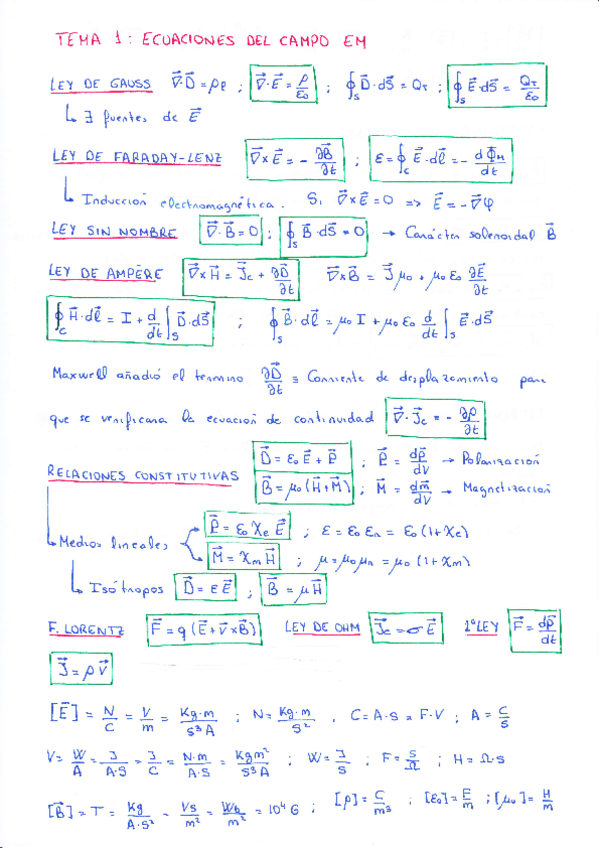 TEMA 1: ECUACIONES DEL CAMPO EM
LEY DE GAUSS ∇⃗·D⃗ = ρ_l ; ∇⃗·E⃗ = ρ/ε₀ ; ∮_S D⃗·dS⃗ = Q_T ; ∮_S E⃗·dS⃗ = Q_T/ε₀
↳ ∃ fuentes de E⃗
LEY DE FARADAY-LENZ ∇⃗×E⃗ = - ∂B⃗/∂t ; ε = ∮_C E⃗·dl⃗ = - dΦ_M/dt
↳ Inducción electromagnética. Si ∇⃗×E⃗ = 0 => E⃗ = -∇⃗φ
LEY SIN NOMBRE ∇⃗·B⃗ = 0 ; ∮_S B⃗·dS⃗ = 0 → Carácter solenoidal B⃗
LEY DE AMPÈRE ∇⃗×H⃗ = J⃗c + ∂D⃗/∂t ∇⃗×B⃗ = J⃗μ₀ + μ₀ε₀ ∂E⃗/∂t
∮_C H⃗·dl⃗ = I + d/dt ∫_S D⃗·dS⃗ ; ∮_S B⃗·dl⃗ = μ₀I + μ₀ε₀ d/dt ∫_S E⃗·dS⃗
Maxwell añadió el termino ∂D⃗/∂t ≡ Corriente de desplazamiento para
que se verificara la ecuación de continuidad ∇⃗·J⃗c = - ∂ρ/∂t
RELACIONES CONSTITUTIVAS
D⃗ = ε₀E⃗ + P⃗ ; P⃗ = dp⃗/dV → Polarización
B⃗ = μ₀(H⃗+M⃗) ; M⃗ = dm⃗/dV → Magnetización
↳ Medios lineales
P⃗ = ε₀ χe E⃗ ; ε = ε₀ εr = ε₀(1+χe)
M⃗ = χm H⃗ ; μ = μ₀μr = μ₀(1+χm)
↳ Isótropos D⃗ = εE⃗ ; B⃗ = μH⃗
F. LORENTZ F⃗ = q(E⃗+v⃗×B⃗) LEY DE OHM J⃗c = σE⃗ 2ª LEY F⃗ = dp⃗/dt
J⃗ = ρv⃗
[E⃗] = N/C = V/m = Kg·m/S³A ; N = Kg·m/S² , C = A·S = F·V ; A = C/S
V = W/A = J/A·S = J/C = N·m/A·S = Kgm²/S³A ; W = J/S ; F = S/Ω ; H = Ω·S
[B⃗] = T = Kg/A·S² = VS/m² = Wb/m² = 10⁴ G ; [ρ] = C/m³ ; [ε₀] = F/m ; [μ₀] = H/m